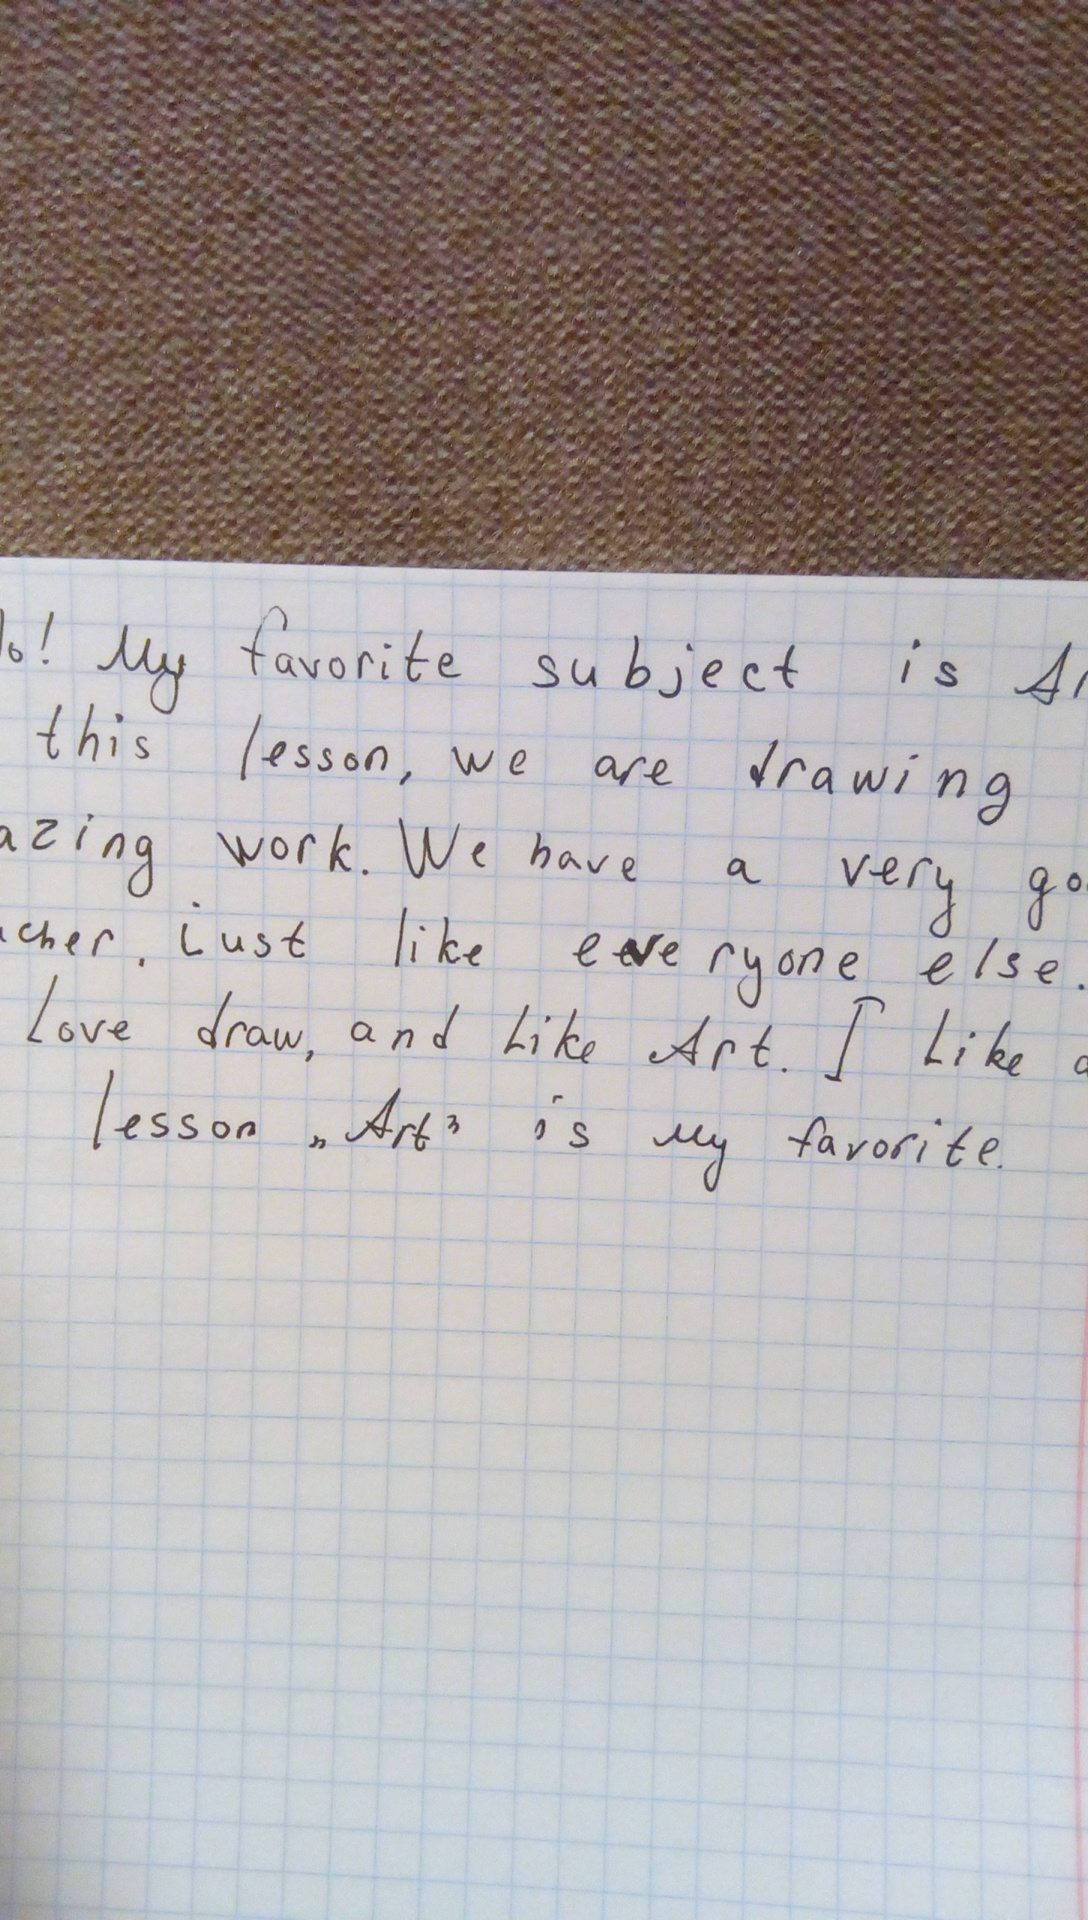 lo! My favorite subject is Ar
this lesson, we are drawing
azing work. We have a very goo
acher, iust like everyone else.
Love draw, and Like Art. I Like a
lesson „Art” is My favorite.